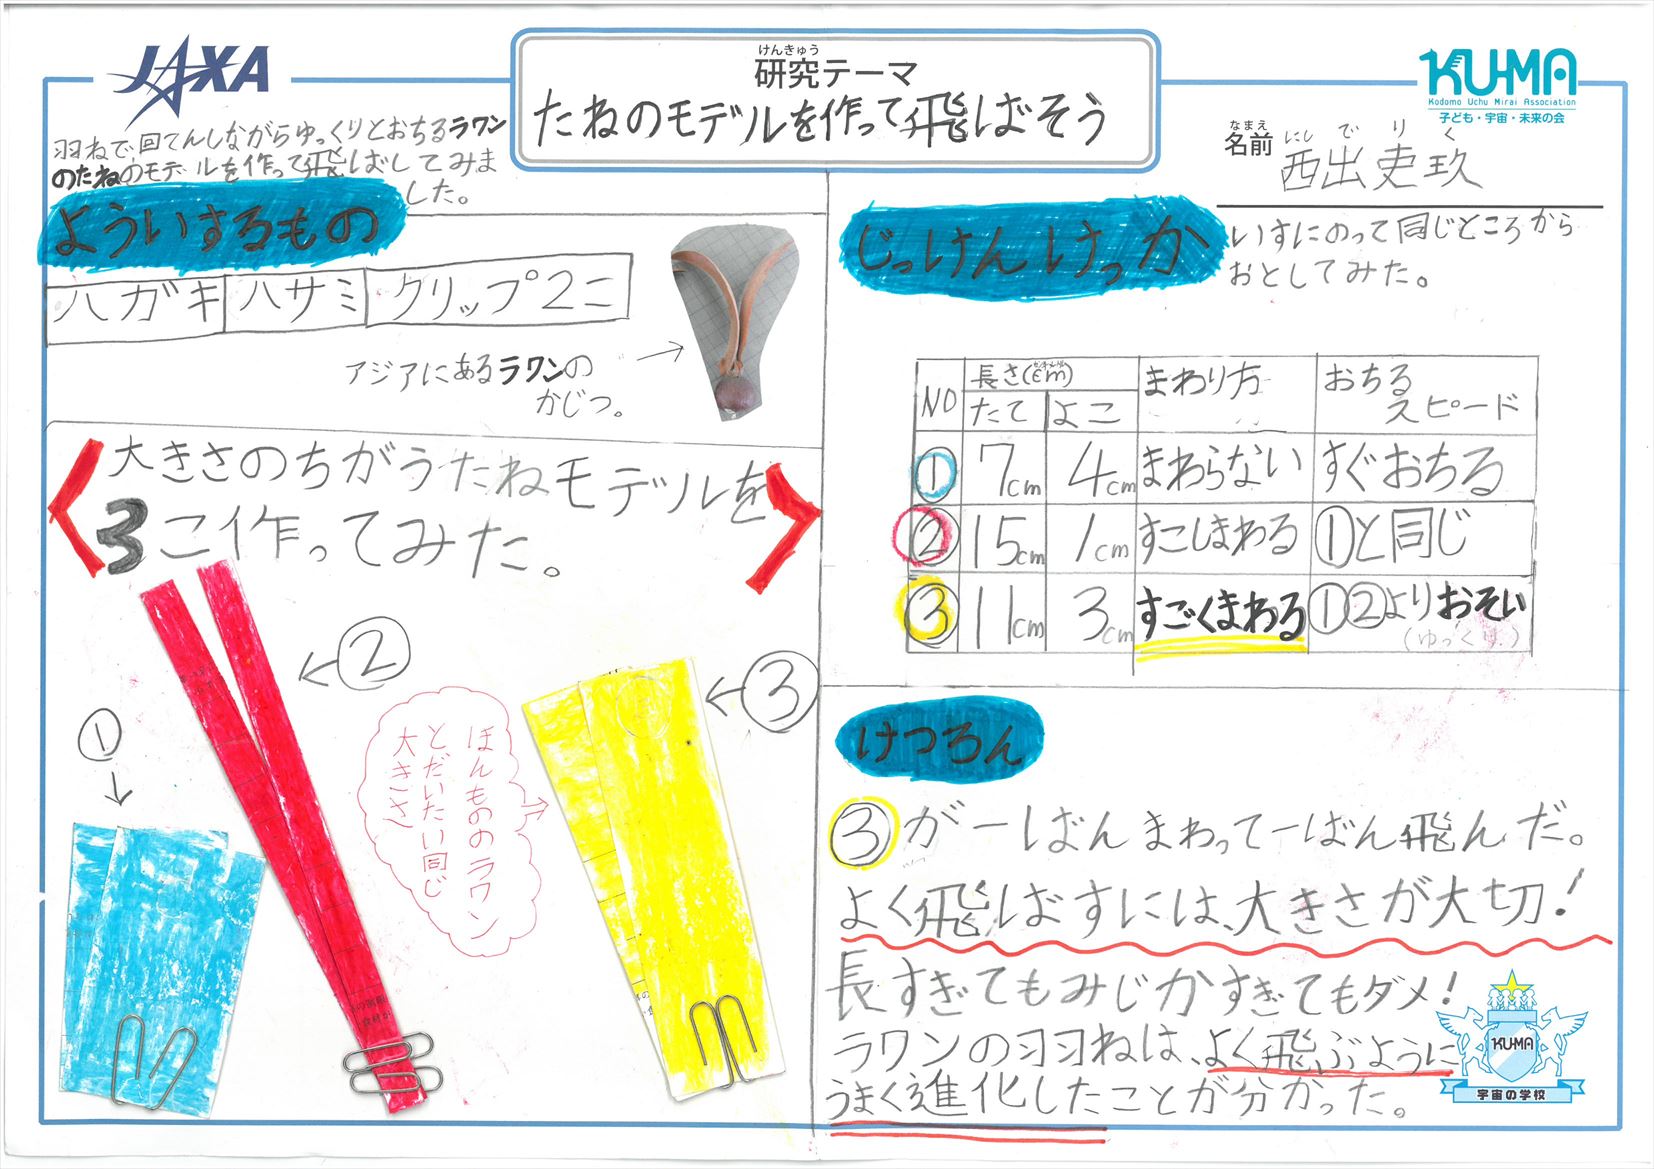 JAXA
けんきゅう
研究テーマ
たねのモデルを作って飛ばそう
KU-MA
Kodomo Uchu Mirai Association
子ども・宇宙・未来の会
なまえ
名前
にし で り く
西出吏玖
羽ねで回てんしながらゆっくりとおちるラワン
のたねのモデルを作って飛ばしてみま
した。
よういするもの
ハガキ ハサミ クリップ2こ
アジアにあるラワンの
かじつ。
大きさのちがうたねモデルを
3こ作ってみた。
①
②
③
ほんもののラワン
とだいたい同じ
大きさ
じっけんけっか
いすにのって同じところから
おとしてみた。
NO 長さ(cm) まわり方 おちる
スピード
センチメートル
たて よこ
① 7cm 4cm まわらない すぐおちる
② 15cm 1cm すこしまわる ①と同じ
③ 11cm 3cm すごくまわる ①②よりおそい
(ゆっくり)
けつろん
③が一ばんまわって一ばん飛んだ。
よく飛ばすには、大きさが大切!
長すぎてもみじかすぎてもダメ!
ラワンの羽ねは、よく飛ぶように
うまく進化したことが分かった。
KU-MA
宇宙の学校